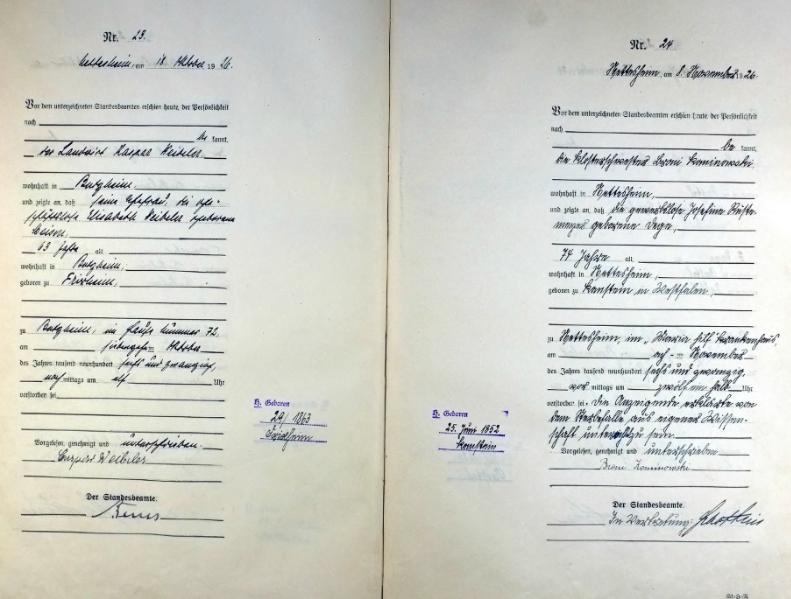 Nr. 23.
Nettesheim, am 18 Oktober 1926.
Vor dem unterzeichneten Standesbeamten erschien heute, der Persönlichkeit
nach
be kannt,
der Landwirt Kaspar
wohnhaft in Butzheim,
und zeigte an, daß seine Ehefrau, die
Elisabeth geborene
63 Jahre alt
wohnhaft in Butzheim,
geboren zu
zu Butzheim, im Hause Nummer 72,
am Oktober
des Jahres tausend neunhundert sechs und zwanzig,
nach mittags um Uhr
verstorben sei.
Vorgelesen, genehmigt und unterschrieben.
Der Standesbeamte.
H. Geboren
1863
Nr. 24
Nettesheim, am 8. November 1926.
Vor dem unterzeichneten Standesbeamten erschien heute, der Persönlichkeit
nach
be kannt,
die Klosterschwester Broni Kominowski
wohnhaft in Nettesheim,
und zeigte an, daß die gewerblose Josefine
geborene Vege,
74 Jahre alt,
wohnhaft in Nettesheim,
geboren zu Canstein in Westfalen,
zu Nettesheim, im "Maria hilf" Krankenhaus,
am November
des Jahres tausend neunhundert sechs und zwanzig,
vor mittags um zwölf ein halb Uhr
verstorben sei. Die Anzeigende erklärte von
dem Sterbefalle aus eigener Wissen-
schaft unterrichtet zu sein.
Vorgelesen, genehmigt und unterschrieben
Broni Kominowski
Der Standesbeamte.
In Vertretung:
H. Geboren
25. Juni 1852